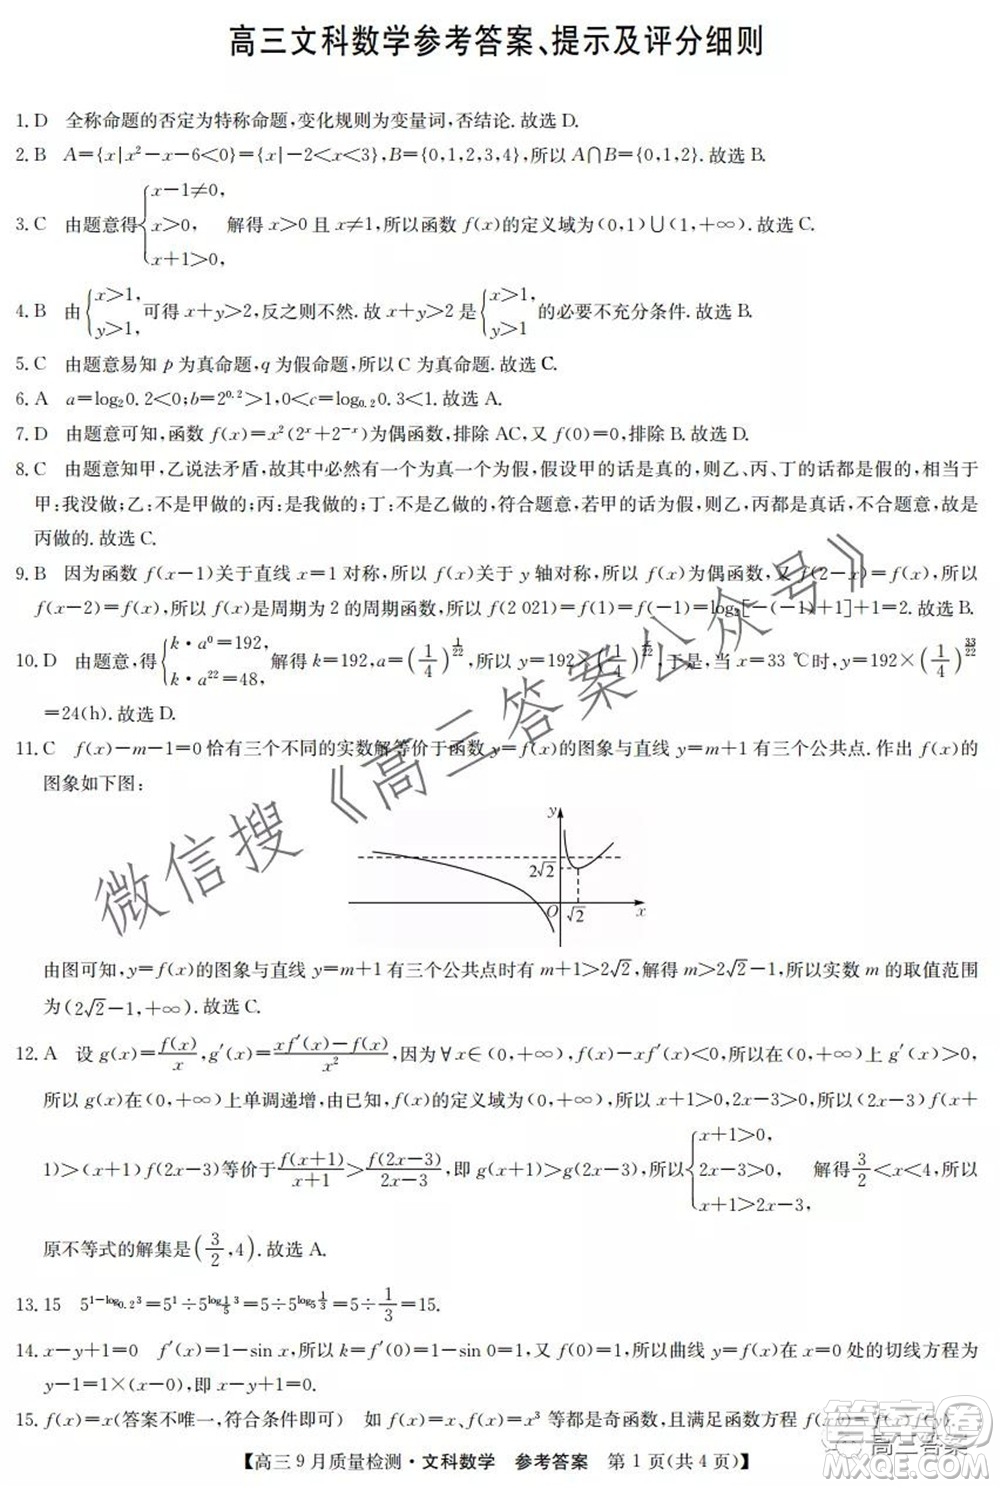 高三文科数学参考答案、提示及评分细则
1. D 全称命题的否定为特称命题,变化规则为变量词,否结论.故选 D.
2. B A={x|x²−x−6<0}={x|−2<x<3},B={0,1,2,3,4},所以 A∩B={0,1,2}.故选 B.
3. C 由题意得{x−1≠0, x>0, x+1>0, 解得 x>0 且 x≠1,所以函数 f(x)的定义域为(0,1)∪(1,+∞).故选 C.
4. B 由{x>1, y>1,可得 x+y>2,反之则不然.故 x+y>2 是{x>1, y>1的必要不充分条件.故选 B.
5. C 由题意易知 p 为真命题,q 为假命题,所以 C 为真命题.故选 C.
6. A a=log₂0.2<0;b=2^0.2>1,0<c=log_0.2 0.3<1.故选 A.
7. D 由题意可知,函数 f(x)=x²(2^x+2^−x)为偶函数,排除 AC,又 f(0)=0,排除 B.故选 D.
8. C 由题意知甲,乙说法矛盾,故其中必然有一个为真一个为假,假设甲的话是真的,则乙、丙、丁的话都是假的,有
甲:我没做;乙:不是甲做的;丙:是我做的;丁:不是乙做的,符合题意,若甲的话为假,则乙、丙为真,不合题意,是
丙做的.故选 C.
9. B 因为函数 f(x−1)关于直线 x=1 对称,所以 f(x)关于 y 轴对称,所以 f(x)为偶函数,又 f(2−x)=f(x),所以
f(x−2)=f(x),所以 f(x)是周期为 2 的周期函数,所以 f(2 021)=f(1)=f(−1)=log₂[−(−1)+1]+1=2.故选 B.
10. D 由题意,得{k·a⁰=192, k·a²²=48, 解得 k=192,a=(1/4)^(1/22),所以 y=192×(1/4)^(x/22),于是,当 x=33 ℃时,y=192×(1/4)^(33/22)
=24(h).故选 D.
11. C f(x)−m−1=0 恰有三个不同的实数解等价于函数 y=f(x)的图象与直线 y=m+1 有三个公共点.作出 f(x)的
图象如下图:
y
2√2
O √2 x
由图可知,y=f(x)的图象与直线 y=m+1 有三个公共点时有 m+1>2√2,解得 m>2√2−1,所以实数 m 的取值范围
为(2√2−1,+∞).故选 C.
12. A 设 g(x)=f(x)/x,g′(x)=(xf′(x)−f(x))/x²,因为∀x∈(0,+∞),f(x)−xf′(x)<0,所以在(0,+∞)上 g′(x)>0,
所以 g(x)在(0,+∞)上单调递增,由已知,f(x)的定义域为(0,+∞),所以 x+1>0,2x−3>0,所以(2x−3)f(x+
1)>(x+1)f(2x−3)等价于f(x+1)/(x+1)>f(2x−3)/(2x−3),即 g(x+1)>g(2x−3),所以{x+1>0, 2x−3>0, x+1>2x−3, 解得3/2<x<4,所以
原不等式的解集是(3/2,4).故选 A.
13. 15 5^(1−log_0.2 3)=5¹÷5^(log_(1/5) 3)=5÷5^(log₅ 1/3)=5÷1/3=15.
14. x−y+1=0 f′(x)=1−sin x,所以 k=f′(0)=1−sin 0=1,又 f(0)=1,所以曲线 y=f(x)在 x=0 处的切线方程为
y−1=1×(x−0),即 x−y+1=0.
15. f(x)=x(答案不唯一,符合条件即可) 如 f(x)=x,f(x)=x³ 等都是奇函数,且满足函数方程 f(xy)=f(x)f(y).
【高三 9 月质量检测·文科数学 参考答案 第 1 页(共 4 页)】
微信搜《高三答案公众号》
高三答案